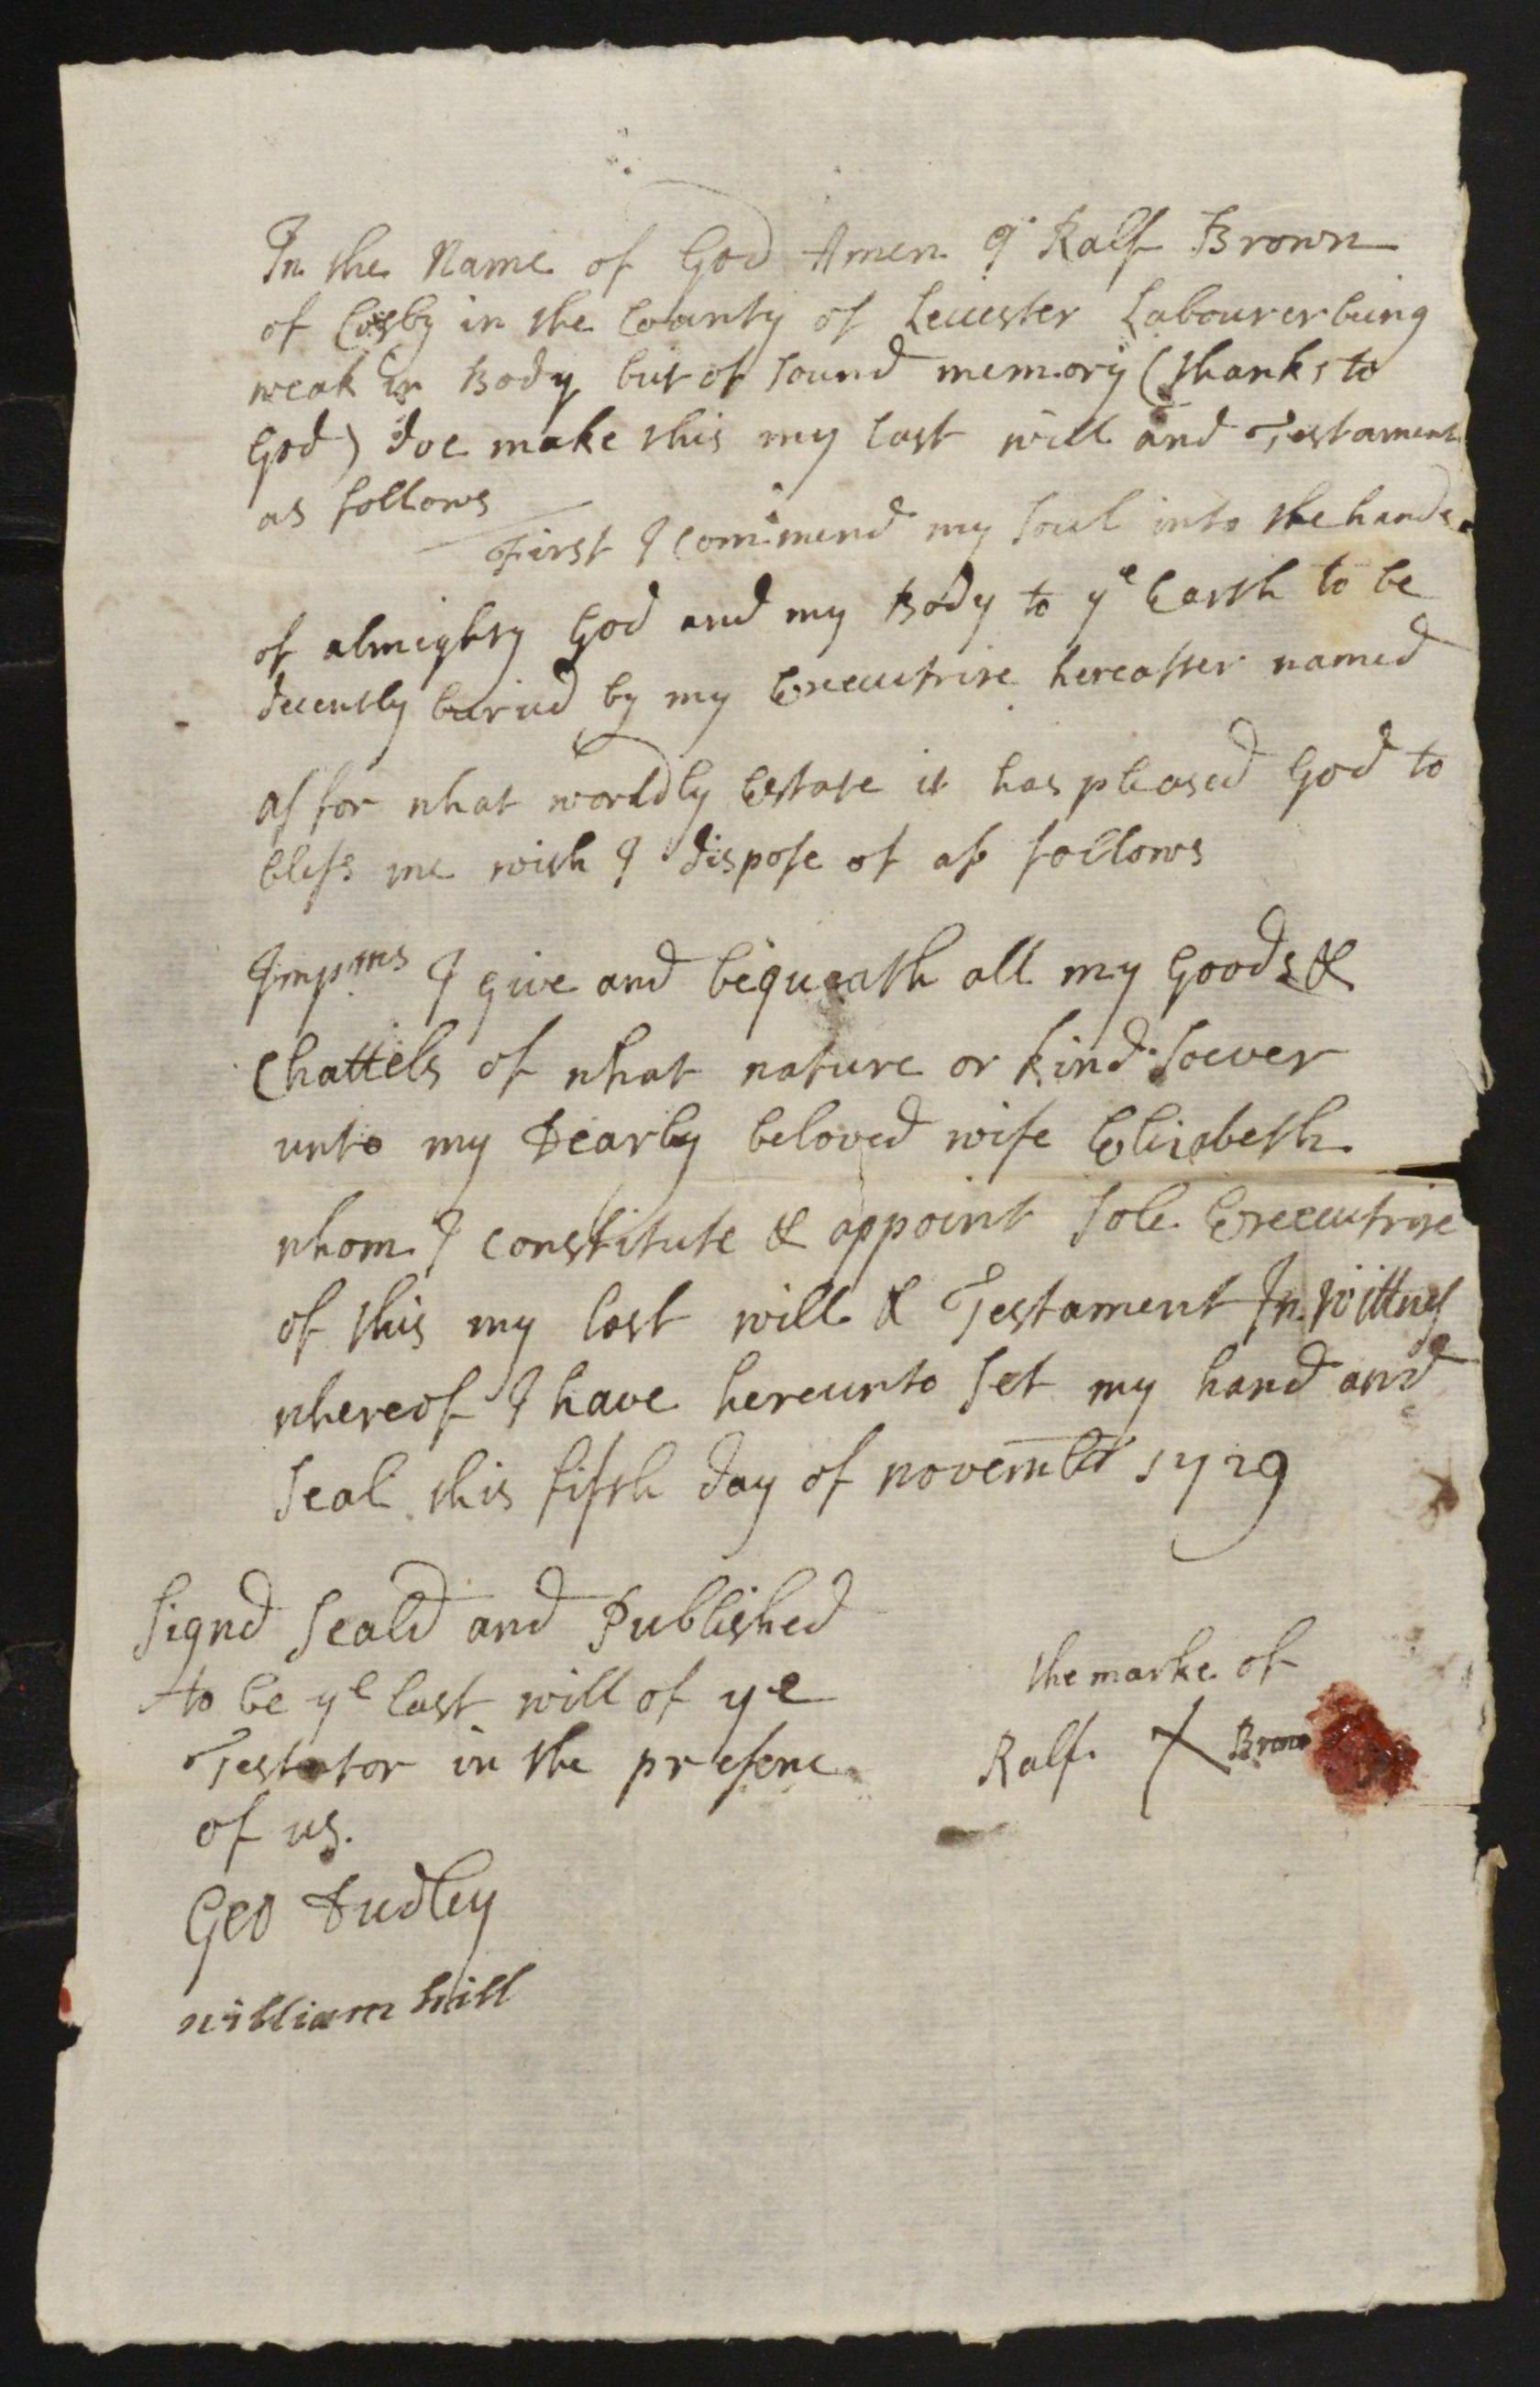 In the Name of God Amen I Ralf Brown
of Cosby in the County of Leicester Labourer being
weak in Body but of sound memory (thanks to
God) doe make this my last will and Testament
as follows
First I commend my soul into the hands
of almighty God and my Body to ye Earth to be
decently buried by my Executrixe hereafter named
as for what worldly Estate it has pleased God to
bless me with I dispose of as follows
Impms I give and bequeath all my Goods &
Chattels of what nature or kind soever
unto my Dearly beloved wife Elizabeth
whom I constitute & appoint sole Executrixe
of this my last will & Testament In Wittness
whereof I have hereunto set my hand and
seal this fifth day of november 1729
Signd seald and Published
to be ye last will of ye
Testator in the presenc
of us.
the marke of
Ralf X Brown
Geo Dudley
william hill